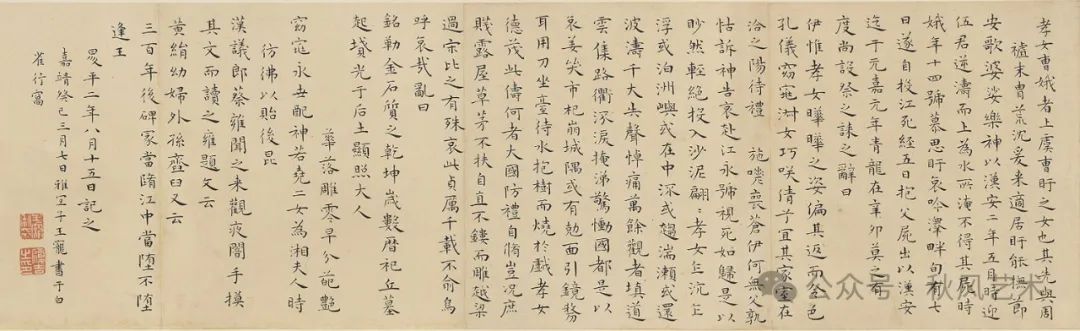 孝女曹娥者上虞曹盱之女也其先與周
末冑荒沉爰来適居盱能撫節
安歌婆娑樂神以漢安二年五月時迎
伍君逆濤而上為水所淹不得其屍時
娥年十四號慕思盱哀吟澤畔旬有七
日遂自投江死經五日抱父屍出以漢安
迄于元嘉元年青龍在辛卯莫之有
度尚設祭之誄之辭曰
伊惟孝女曄曄之姿偏其返而令色
孔儀窈窕淑女巧咲倩兮宜其家室在
洽之陽待禮 施嗟喪蒼伊何無父孰
怙訴神告哀赴江永號視死如歸是以
眇然輕絕投入沙泥翩〻孝女乍沉乍
浮或泊洲嶼或在中流或趨湍瀨或還
波濤千夫失聲悼痛萬餘觀者填道
雲集路衢泣淚掩涕驚慟國都是以
哀姜哭市杞崩城隅或有面引鏡剺
耳用刀坐臺待水抱樹而燒於戲孝女
德茂此儔何者大國防禮自脩豈况庶
賤露屋草茅不扶自直不鏤而雕越梁
過宗比之有殊哀此貞厲千載不渝烏
呼哀哉亂曰
銘勒金石質之乾坤歲數曆祀丘墓
起墳光于后土顯照夫人
華落雕零早分葩艷
窈窕永世配神若堯二女為湘夫人時
彷彿以貽後昆
漢議郎蔡雍聞之来觀夜闇手摸
其文而讀之雍題文云
黃絹幼婦外孫虀臼又云
三百年後碑冢當墮江中當墮不墮
逢王
昇平二年八月十五日記之
嘉靖癸巳三月七日雅宜子王寵書于白
雀行窩
公众号 · 秋风艺术